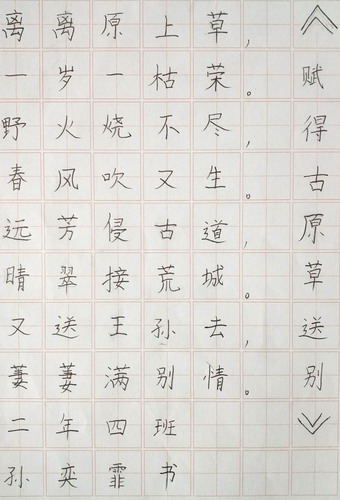 《赋得古原草送别》
离离原上草,
一岁一枯荣。
野火烧不尽,
春风吹又生。
远芳侵古道,
晴翠接荒城。
又送王孙去,
萋萋满别情。
二年四班
孙奕霏书